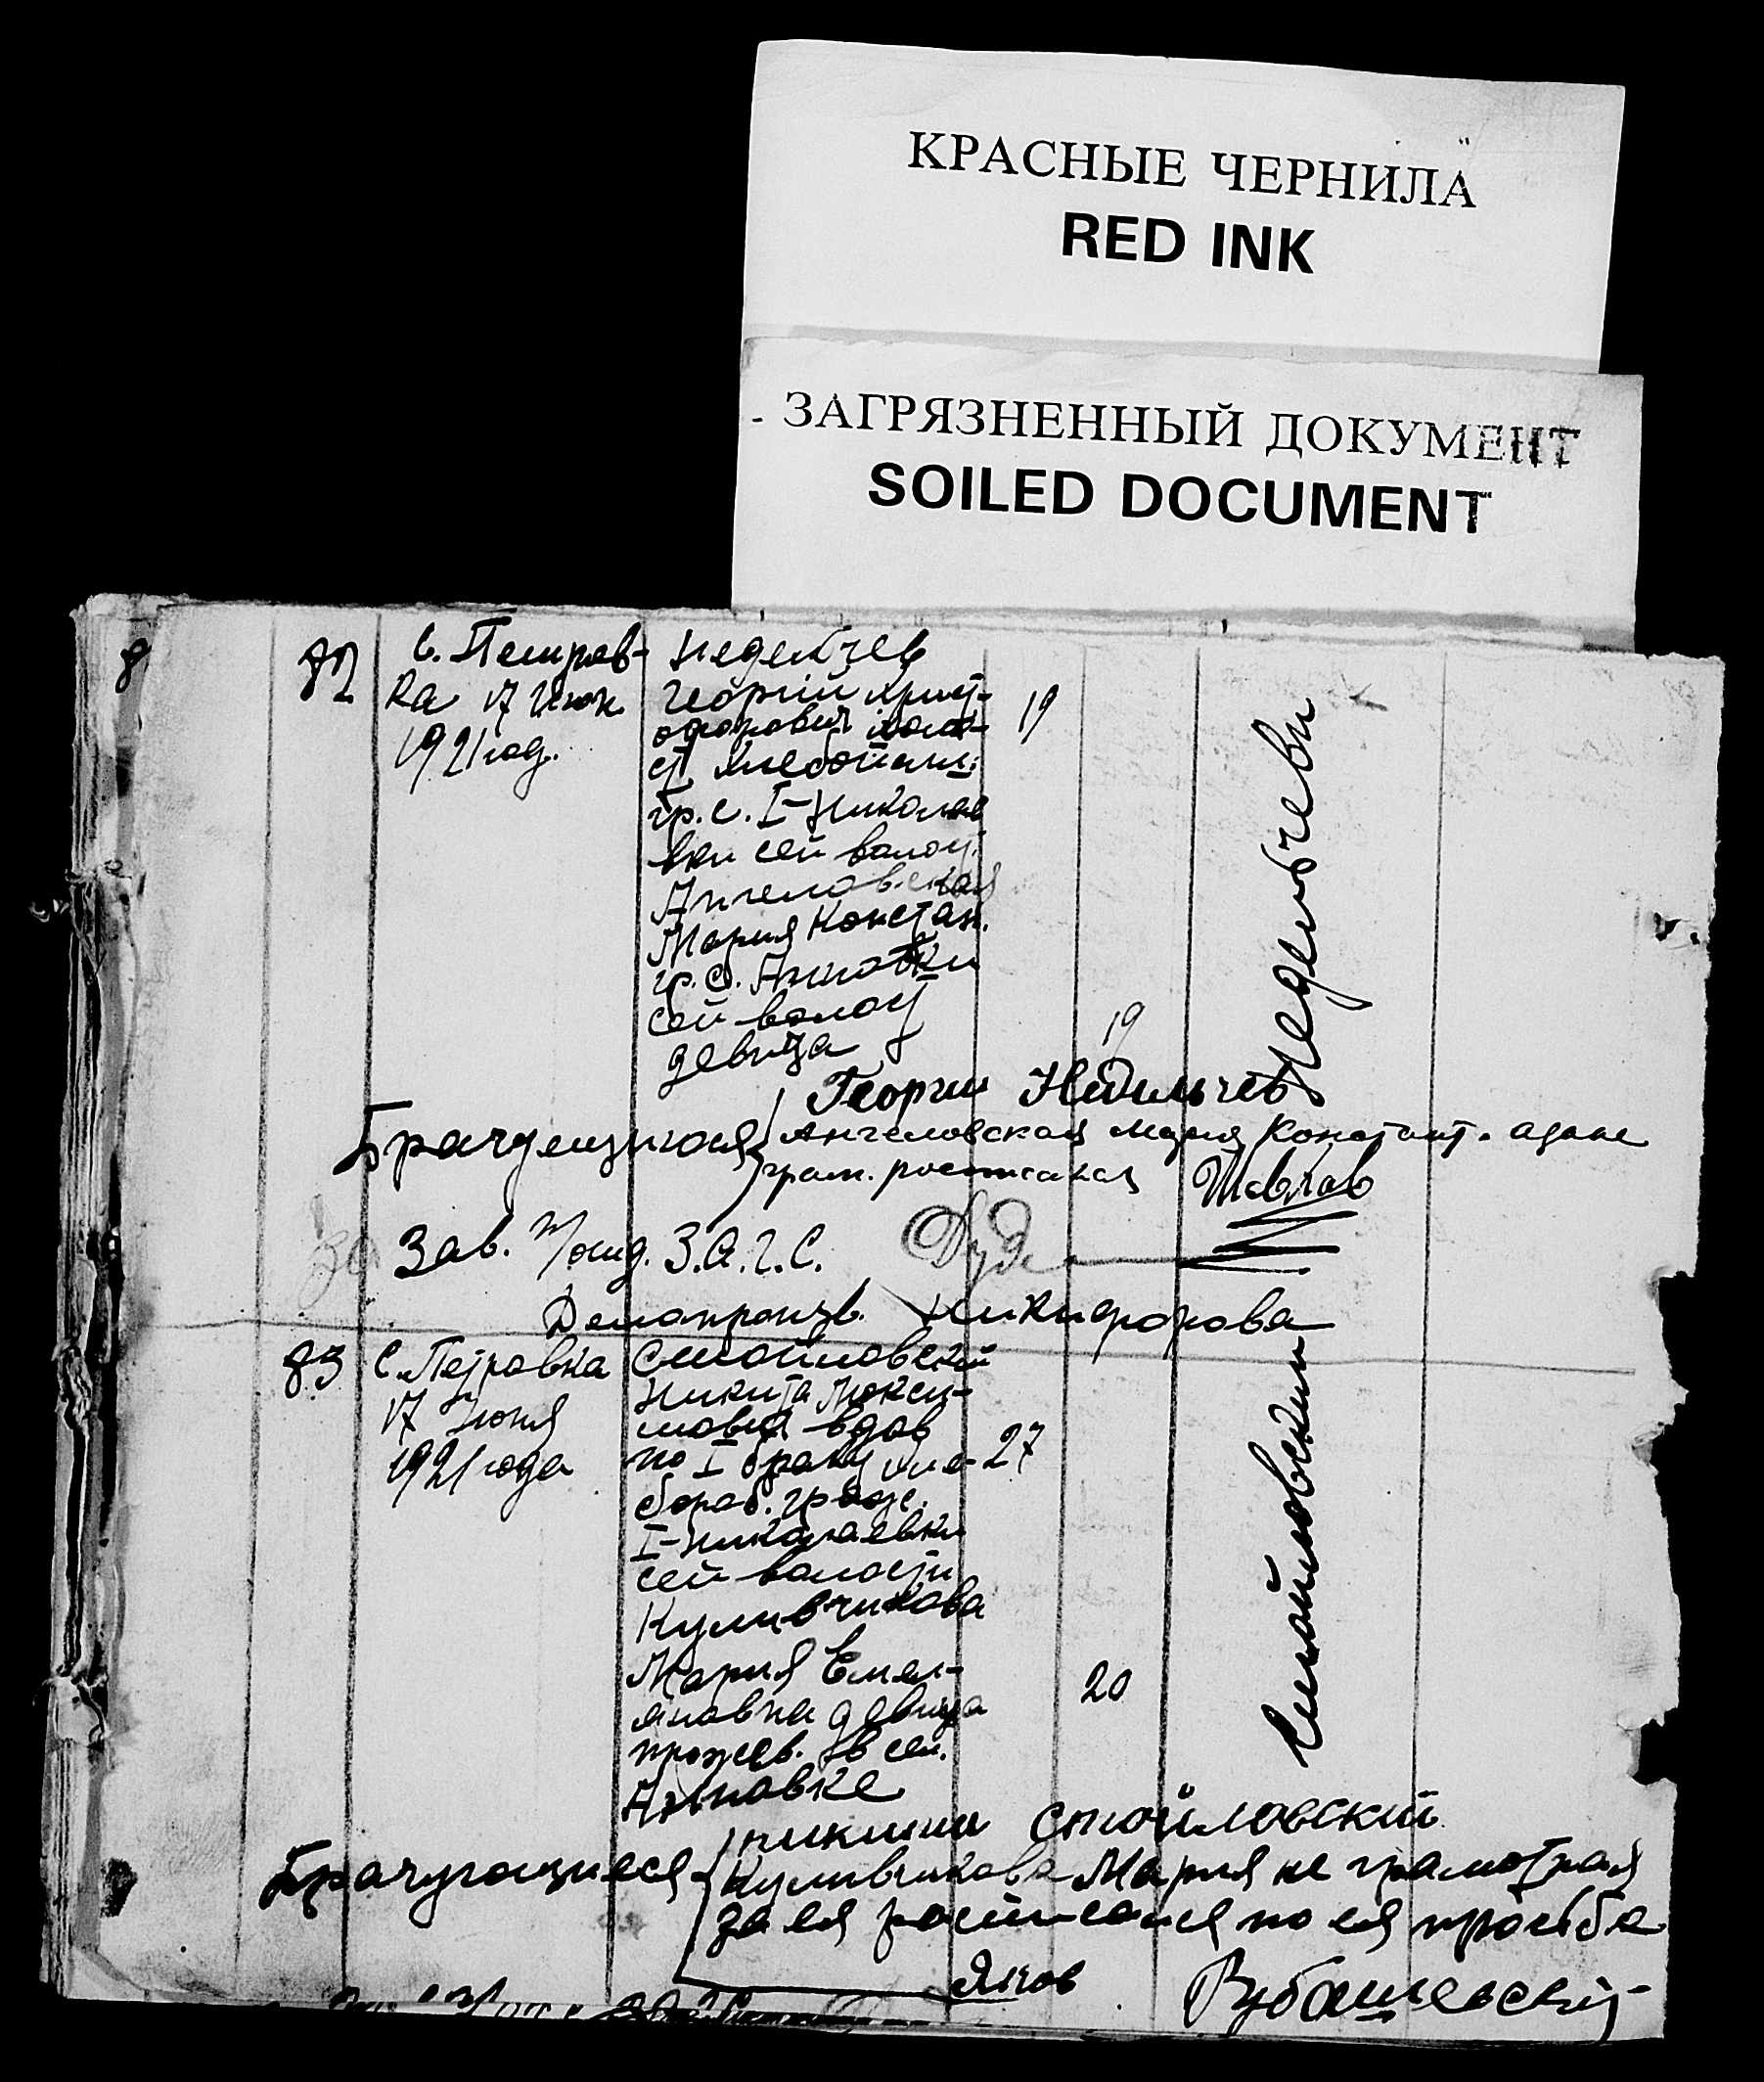 КРАСНЫЕ ЧЕРНИЛА
RED INK
ЗАГРЯЗНЕННЫЙ ДОКУМЕНТ
SOILED DOCUMENT
82
с. Петров-
ка 17 Июн
1921 год.
Недельчев
Георгий Христ-
офорович холо-
ст хлебопаш.
гр. с. I-Николае
вки сей волост.
Ангеловская
Мария Констан.
гр. с. Анновки
сей волост
девица
19
19
Недельчевы
Георги Недильчев
Брачущиеся
Ангеловская Мария Констант. а за не
грам. росписался
Зав. п/отд. З.А.Г.С.
Делопроизв. Никифорова
83
С. Петровка
17 Июня
1921 года
Стойловский
Никита Макси-
мович вдов
по I браку хле-
бораб. гражс.
I-Николаевки
сей волости
Куливчикова
Мария Емел-
яновна девица
прожив. в сел.
Анновке
27
20
Стойловские
Никита Стойловский
Брачующиеся
Куливчикова Мария не грамотная
за ея росписался по ея просьбе
Яков